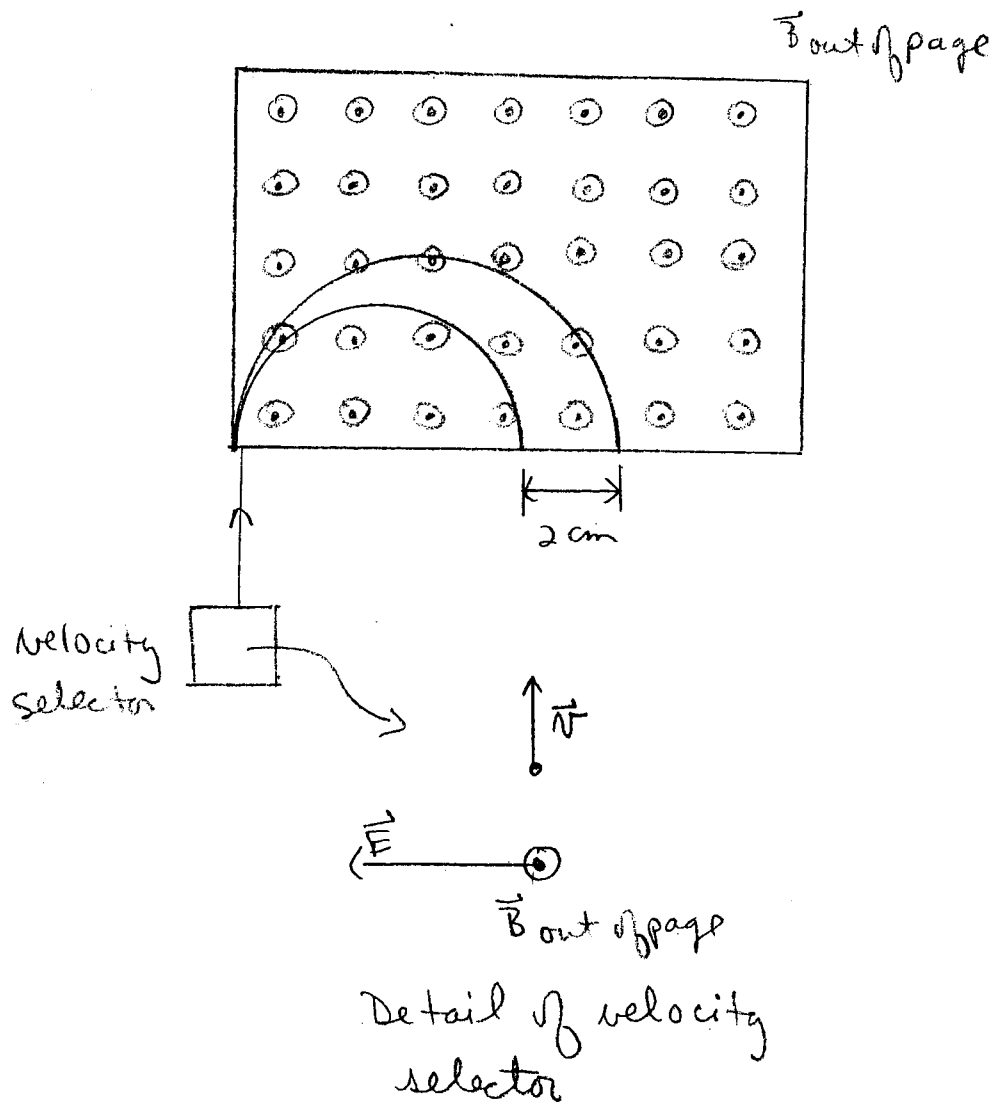 B out of page
2 cm
velocity
selector
v
E
B out of page
Detail of velocity
selector